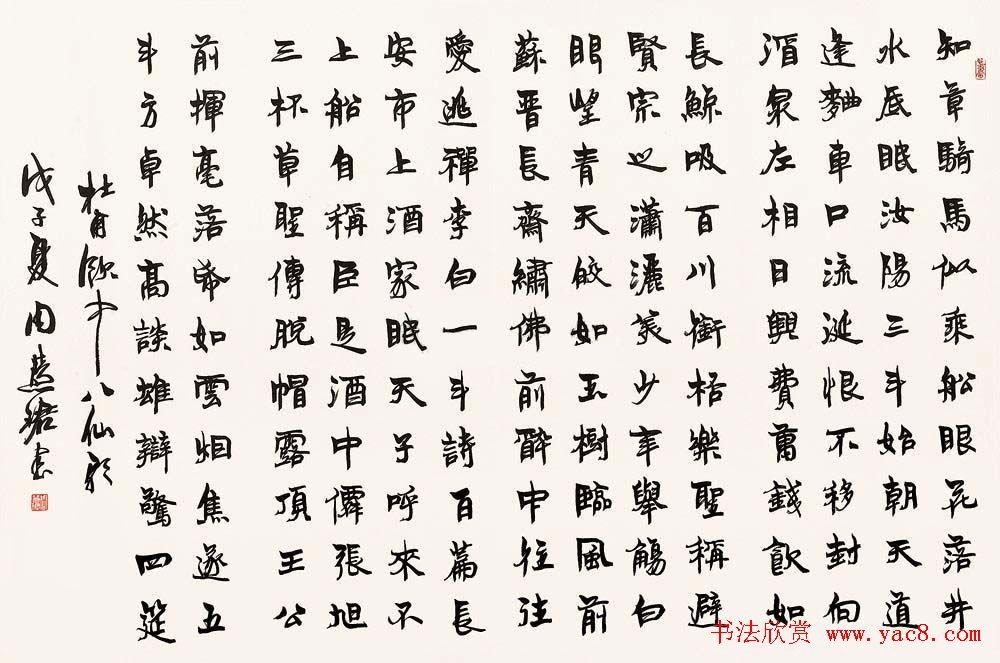 知章騎馬似乘船眼花落井
水底眠汝陽三斗始朝天道
逢麴車口流涎恨不移封向
酒泉左相日興費萬錢飲如
長鯨吸百川銜杯樂聖稱避
賢宗之瀟灑美少年舉觴白
眼望青天皎如玉樹臨風前
蘇晉長齋繡佛前醉中往往
愛逃禪李白一斗詩百篇長
安市上酒家眠天子呼來不
上船自稱臣是酒中僊張旭
三杯草聖傳脫帽露頂王公
前揮毫落紙如雲烟焦遂五
斗方卓然高談雄辯驚四筵
杜甫飲中八仙歌
戊子夏周慧珺書
书法欣赏 www.yac8.com